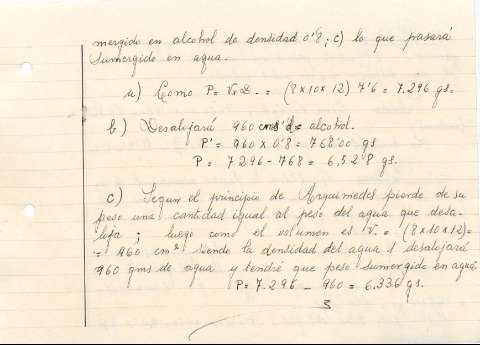 mergido en alcohol de densidad 0'8; c) lo que pasará
sumergido en agua.
a) Como P = V x D. = (8 x 10 x 12) 7'6 = 7.296 gs.
b) Desalojará 960 cms³ de alcohol.
P' = 960 x 0'8 = 768'00 gs
P = 7296 - 768 = 6,528 gs.
c) Segun el principio de Arquimedes pierde de su
peso una cantidad igual al peso del agua que desa-
loja; luego como el volumen es V. = (8 x 10 x 12) =
= 960 cm³ siendo la densidad del agua 1 desalojará
960 gms de agua y tendré que peso sumergido en agua
P = 7.296 - 960 = 6.336 gs.
3